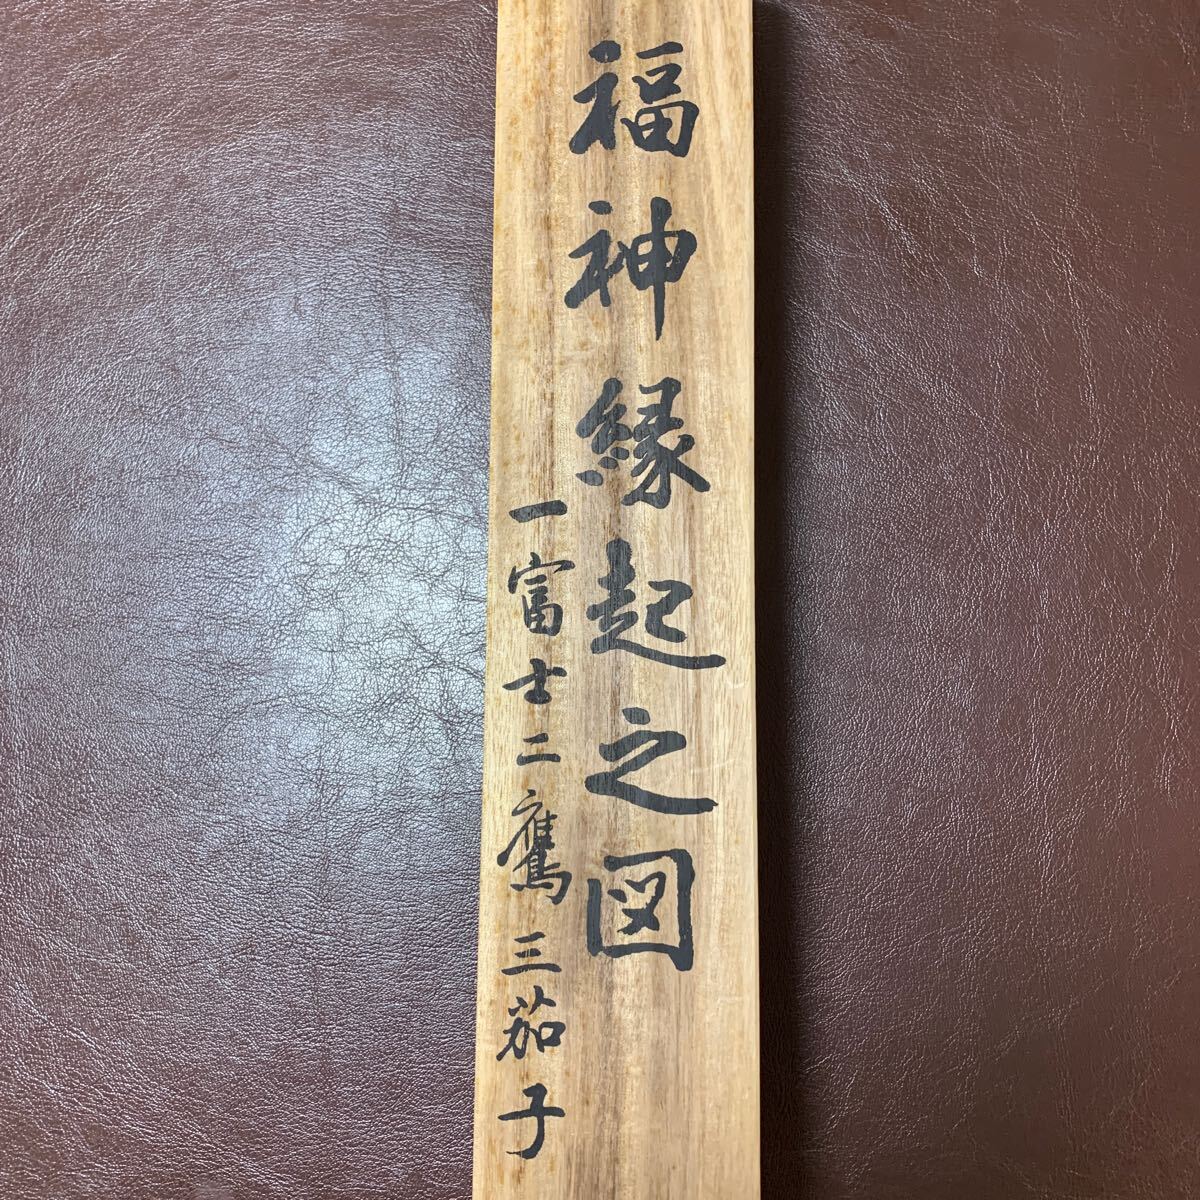 福神縁起之図
一富士二鷹三茄子